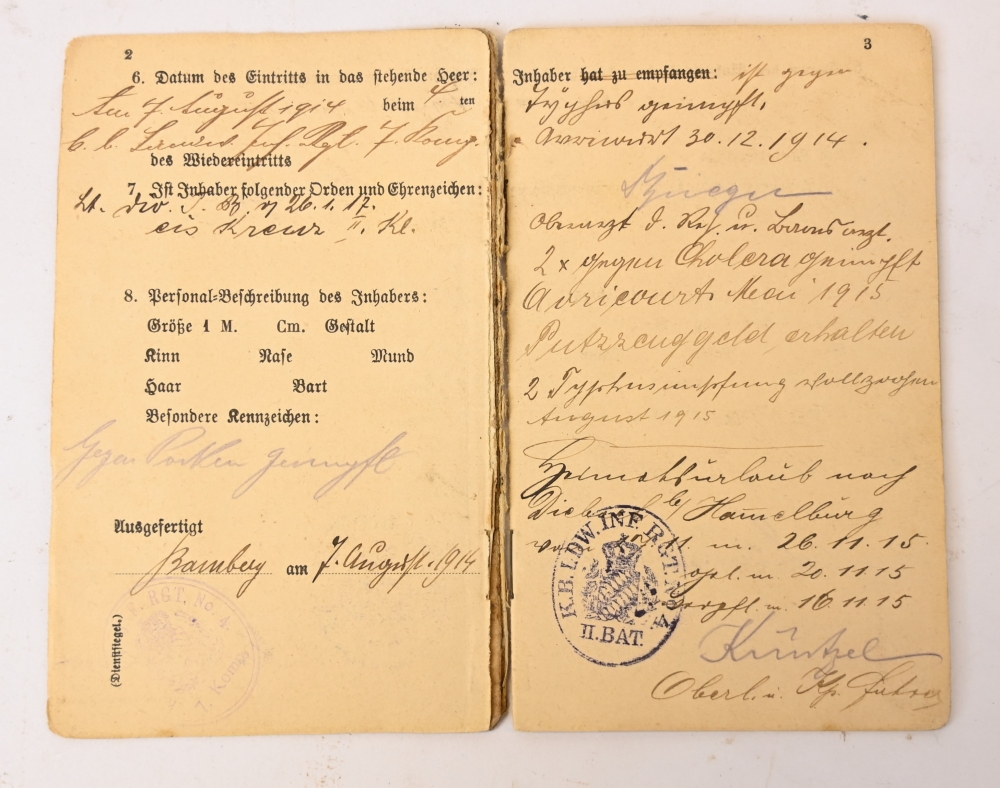 2
6. Datum des Eintritts in das stehende Heer:
Am 7. August 1914 beim 4 ten
k. b. Landw. Inf. Rgt. 7. Komp.
des Wiedereintritts
7. Ist Inhaber folgender Orden und Ehrenzeichen:
Lt. Div. T. B. v. 26.1.17.
eis Kreuz II. Kl.
8. Personal-Beschreibung des Inhabers:
Größe 1 M. Cm. Gestalt
Kinn Nase Mund
Haar Bart
Besondere Kennzeichen:
Gegen Pocken geimpft
Ausgefertigt
Bamberg am 7. August 1914
(Dienstsiegel.)
RGT. No. 4.
7. Komp.
3
Inhaber hat zu empfangen: ist gegen
Typhus geimpft.
Avricourt 30.12.1914.
Oberarzt d. Res. u. Bataillonsarzt.
2 x gegen Cholera geimpft
Avricourt Mai 1915
Putzzeuggeld erhalten
2 Typhusimpfung vollzogen
August 1915
Heimatsurlaub nach
b/ Hammelburg
m. 26.11.15
m. 20.11.15
verpfl. m. 16.11.15
K.B. LDW. INF. RGT. No 4
II. BAT.
Küntzel
Oberl. u. Kp. Führer